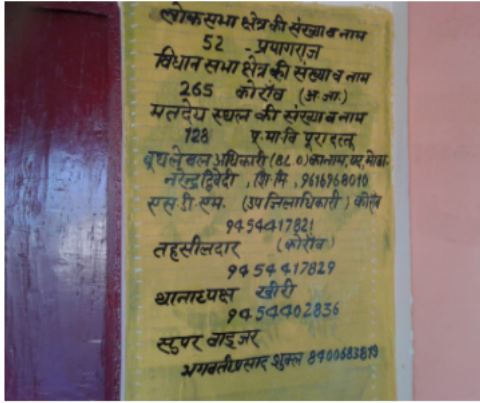 लोकसभा क्षेत्र की संख्या व नाम
52 - प्रयागराज
विधान सभा क्षेत्र की संख्या व नाम
265 कोराँव (अ.जा.)
मतदेय स्थल की संख्या व नाम
128 पू.मा.वि पूरा दत्तू
बूथ लेवल अधिकारी (B.L.O) का नाम, पद, मोबा.
नरेन्द्र द्विवेदी, शि.मि, 9616968010
एस.डी.एम. (उप जिलाधिकारी) कोराँव
9454417821
तहसीलदार (कोराँव)
9454417829
थानाध्यक्ष खीरी
9454402836
सुपर वाइजर
भगवती प्रसाद शुक्ल